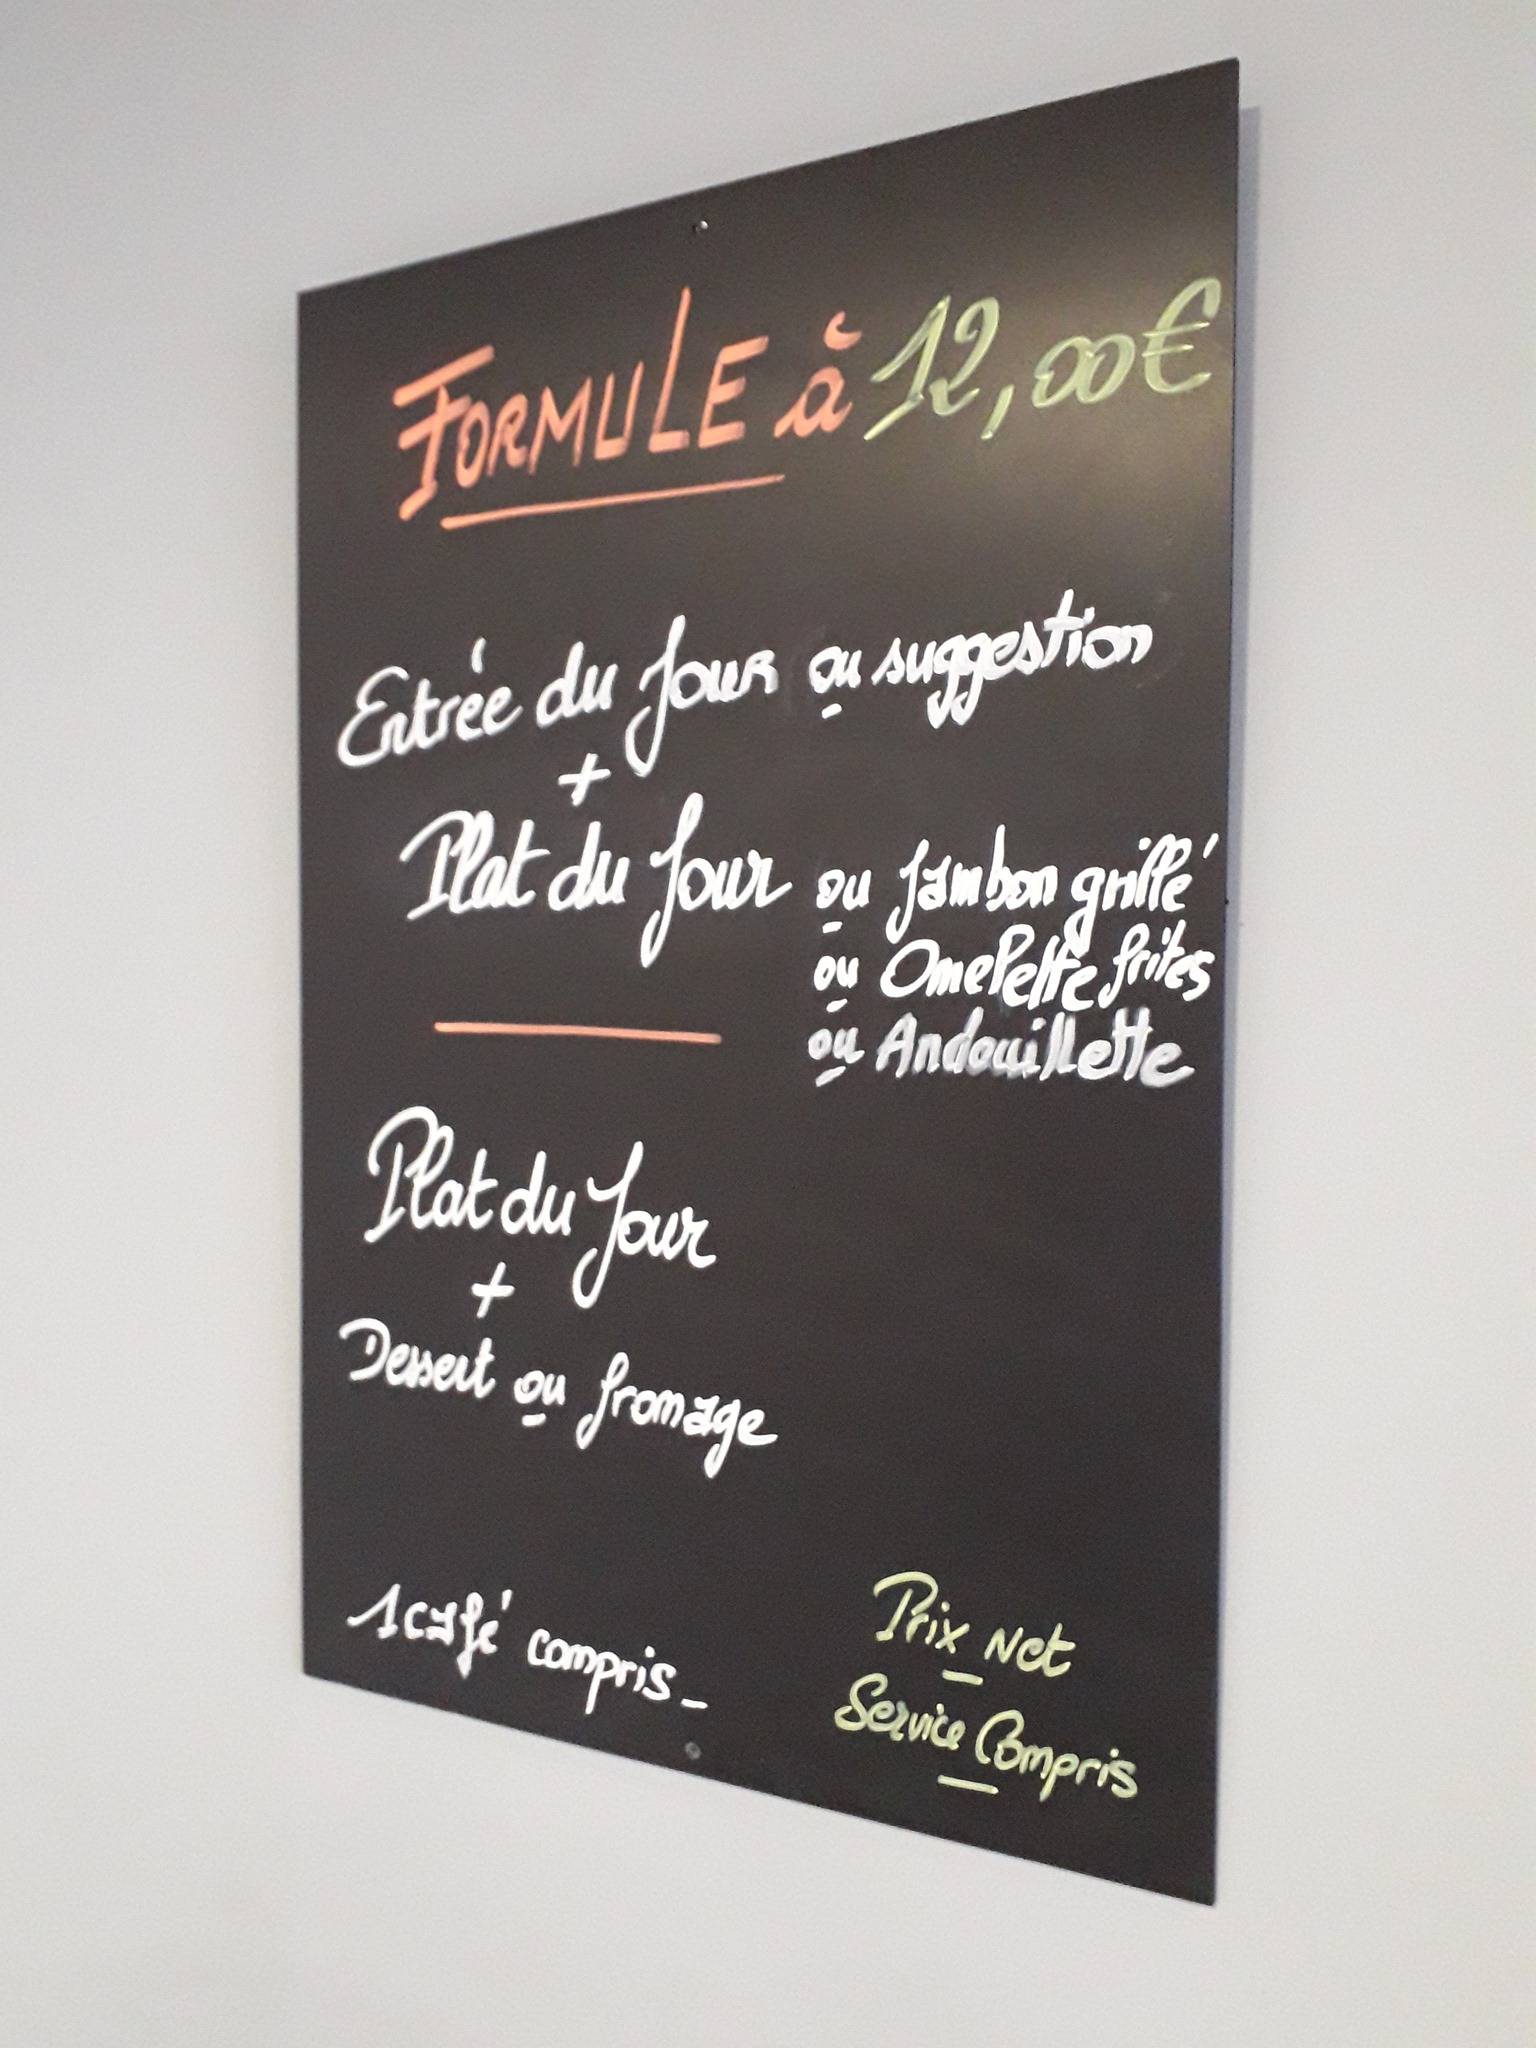 FORMULE à 12,00€
Entrée du Jour ou suggestion
+
Plat du Jour ou Jambon grillé
ou Omelette frites
ou Andouillette
Plat du Jour
+
Dessert ou fromage
1 café compris_
Prix Net
Service Compris